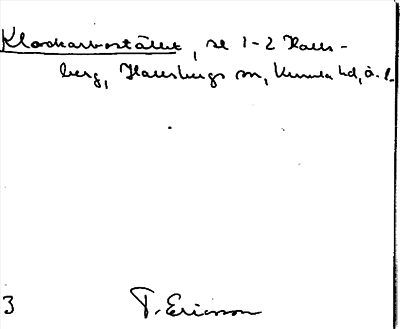 Klockarbostället, se 1-2 Hals-
berg, Hallsbergs sn, Kumla hd, ö. l.
3 T. Ericsson